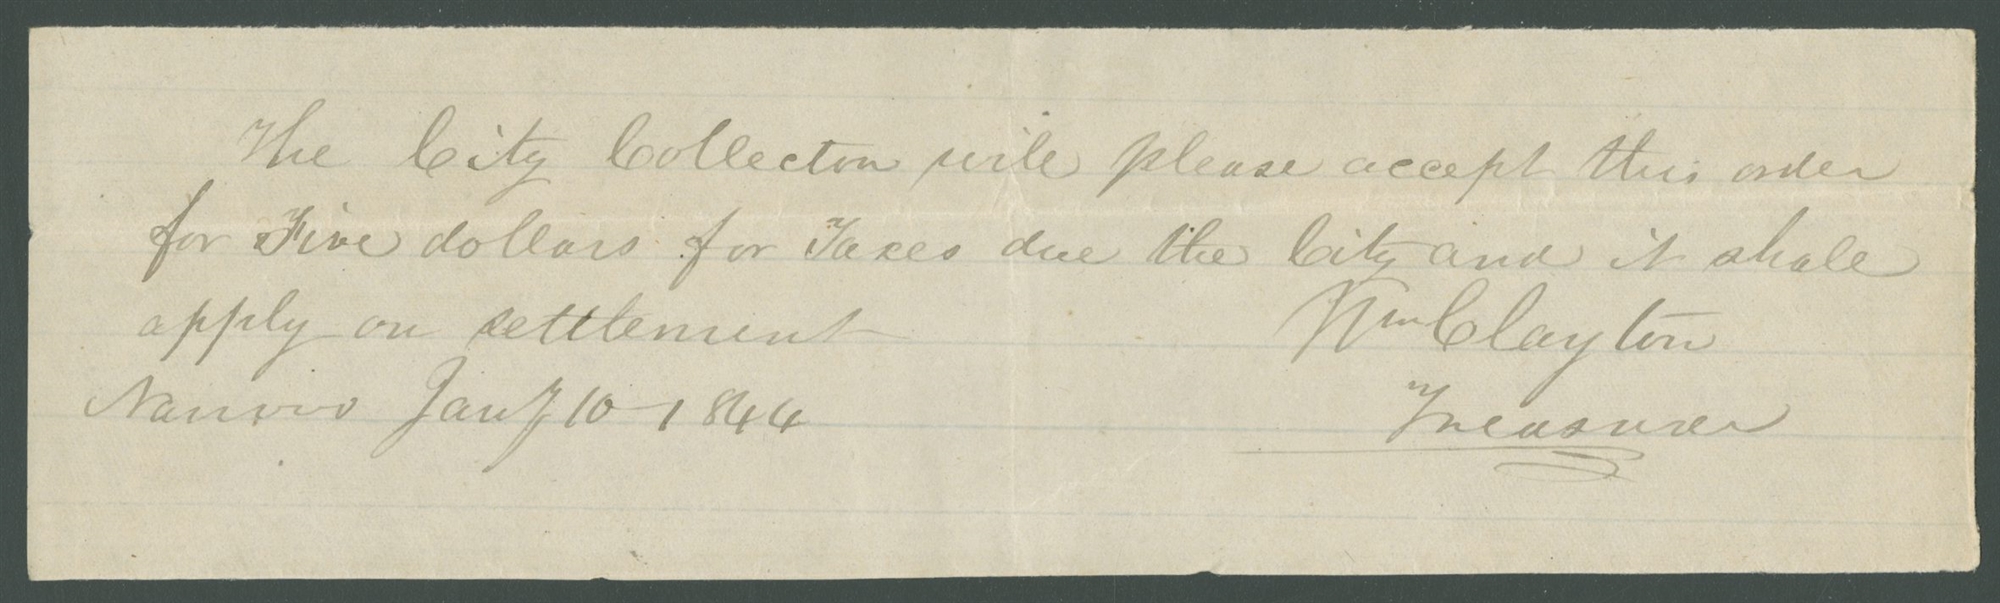 The City Collector will please accept this order
for Five dollars for Taxes due the City and it shall
apply on settlement Wm Clayton
Nauvoo Jany 10 1844 Treasurer